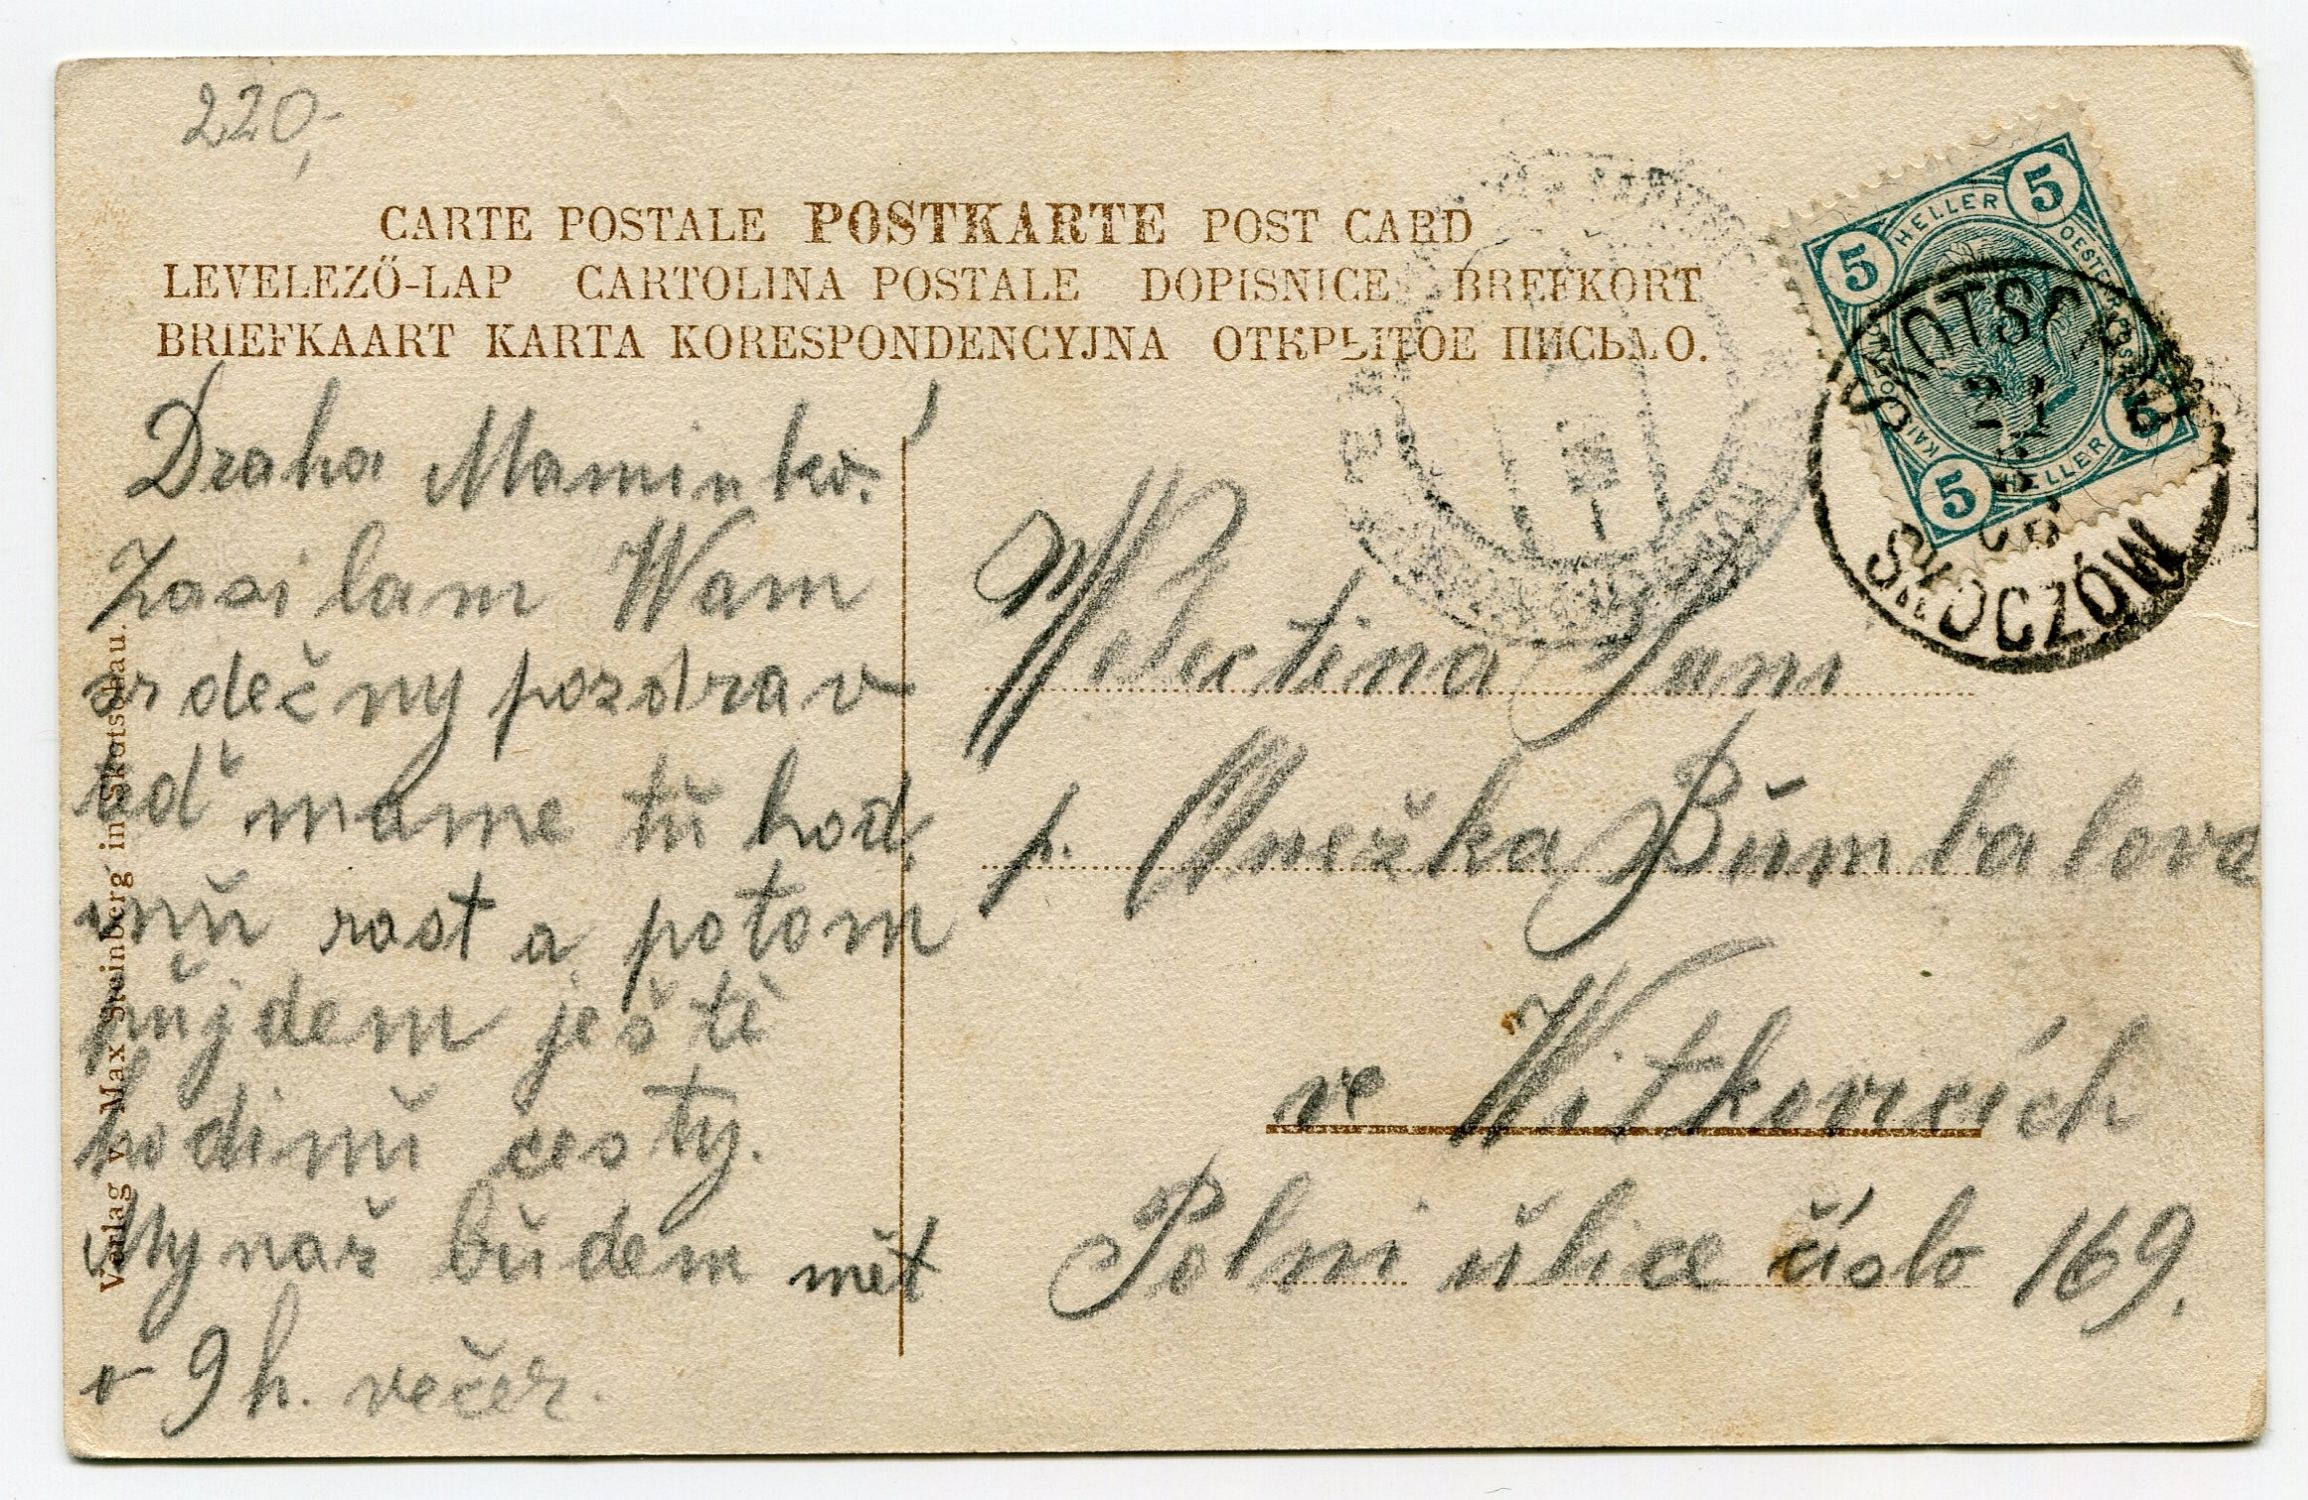 220,-
CARTE POSTALE POSTKARTE POST CARD
LEVELEZŐ-LAP CARTOLINA POSTALE DOPISNICE BREFKORT
BRIEFKAART KARTA KORESPONDENCYJNA ОТКРЫТОЕ ПИСЬМО.
Draha Maminko!
Zasilam Wam
srdečny pozdrav
teď mame tŭ hod.
inŭ rast a potom
pŭjdem ještě
hodinŭ cesty.
My naž bŭdem mět
v 9 h. večer.
Verlag v. Max Steinberg in Skotschau.
5 HELLER 5
5 HELLER 5
SKOTSCHAU
21
08
SKOCZÓW
Welectina Pani
p. Anežka Bŭmbalova
ve Witkovicích
Polni ŭlice číslo 169.